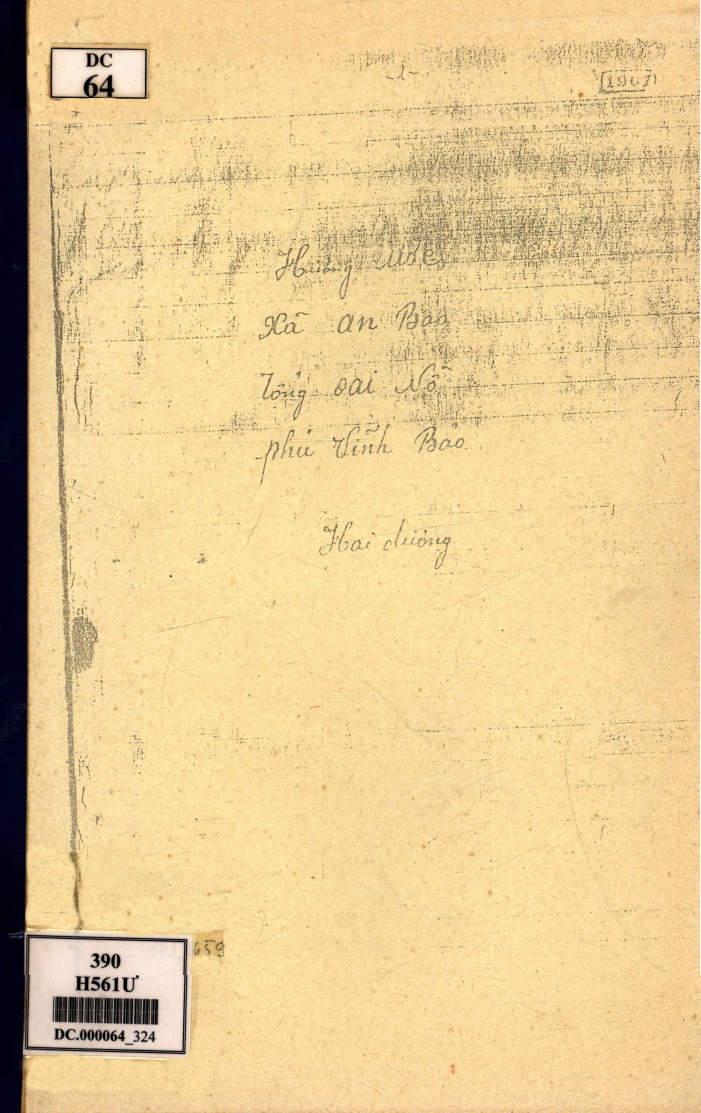 DC
64
-1-
[1967]
Hương ước
Xã an Bảo
Tổng oai Nỗ
phủ Vĩnh Bảo
Hải dương
659
390
H561Ư
DC.000064_324